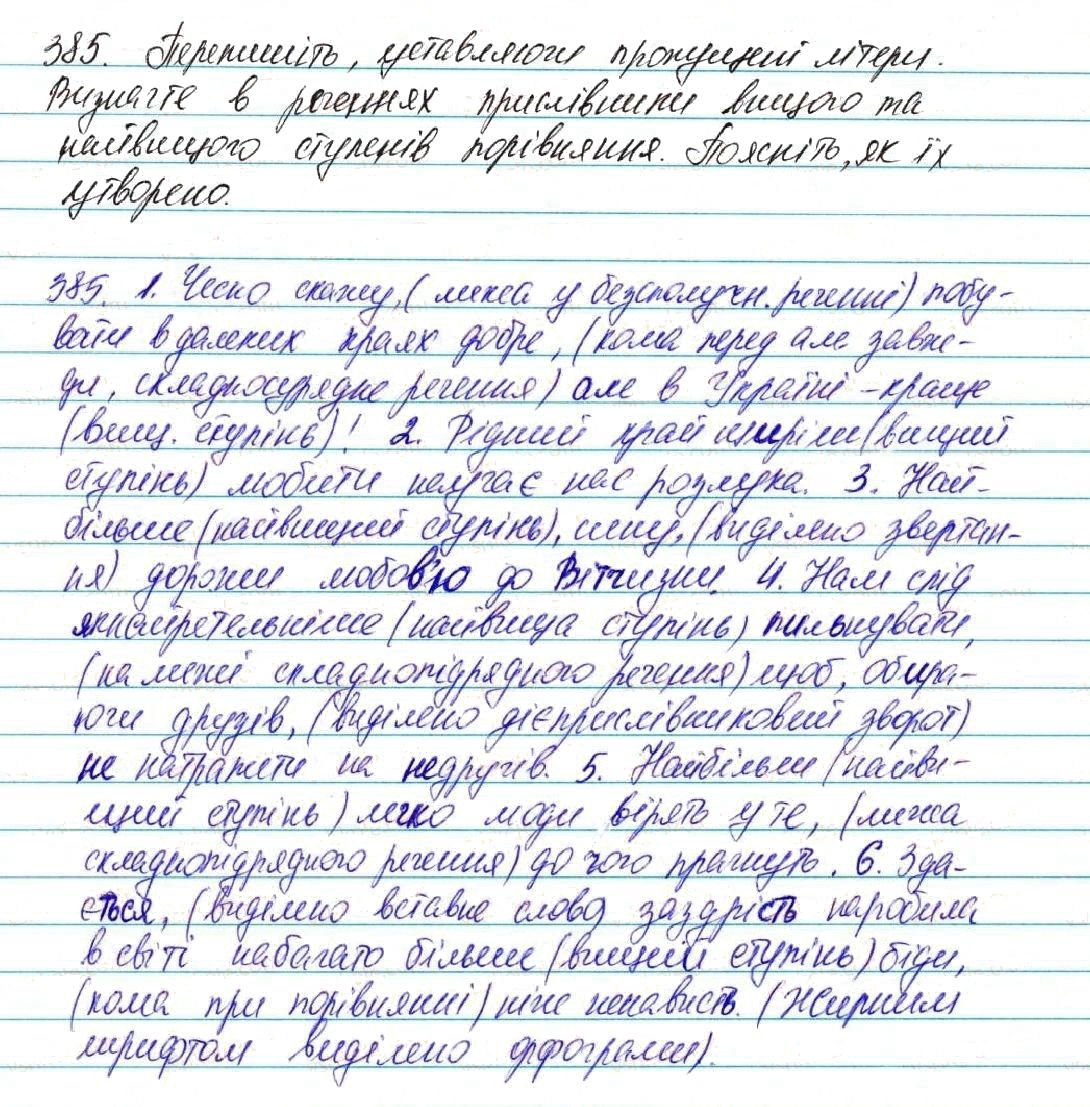 385. Перепишіть, уставляючи пропущені літери.
Визначте в реченнях прислівники вищого та
найвищого ступенів порівняння. Поясніть, як їх
утворено.
385. 1. Чесно скажу, (межа у безсполучн. реченні) побу-
вати в далеких краях добре, (кома перед але завж-
ди, складносурядне речення) але в Україні - краще
(вищ. ступінь)! 2. Рідний край щиріш (вищий
ступінь) любити научає нас розлука. 3. Най-
більше (найвищий ступінь), сину, (виділено звертан-
ня) дорожи любов'ю до Вітчизни. 4. Нам слід
якнайретельніше (найвища ступінь) пильнувати,
(на межі складнопідрядного речення) щоб, обира-
ючи друзів, (виділено дієприслівниковий зворот)
не натрапити на недругів. 5. Найбільш (найви-
щий ступінь) легко люди вірять у те, (межа
складнопідрядного речення) до чого прагнуть. 6. Зда-
ється, (виділено вставне слово) заздрість наробила
в світі набагато більше (вищий ступінь) біди,
(кома при порівнянні) ніж ненависть. (Жирним
шрифтом виділено орфограми).